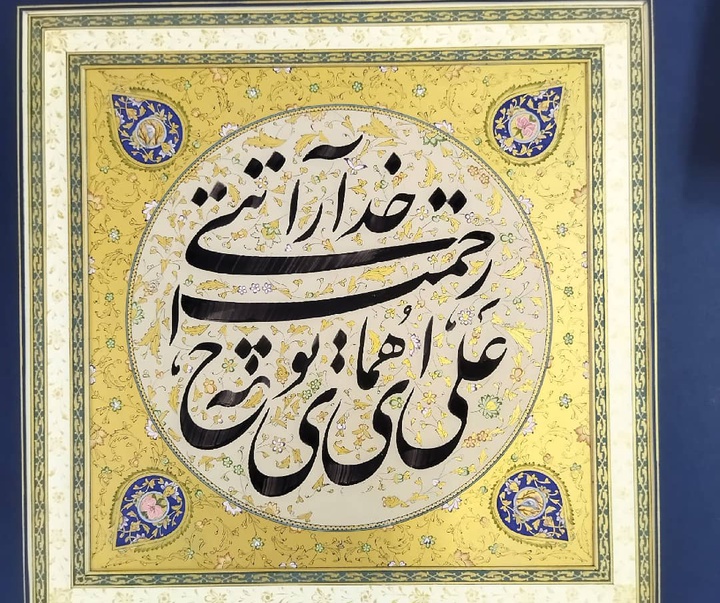 عَلی ای هُمای رحمت تو چه آیتی خدا را